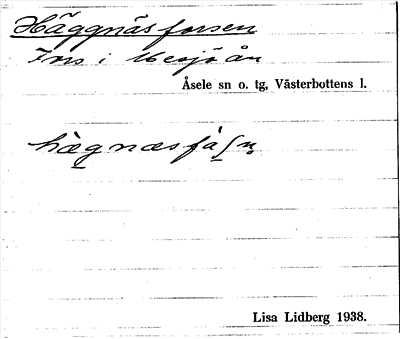 Häggnäsforsen
Fors i
Åsele sn o. tg, Västerbottens l.
hägnæsfåʃn̥
Lisa Lidberg 1938.